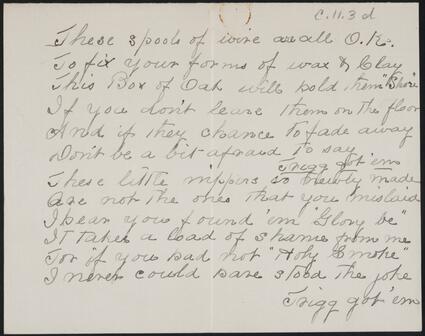 C.11.3 d
These spools of wire are all O.K.
To fix your forms of wax & Clay
This Box of Oak will hold them "Shore
If you don't leave them on the floor
And if they chance to fade away
Don't be a bit afraid to say
Trigg got 'em
These little nippers so trewly made
Are not the ones that you mislaid
I hear you found 'em "Glory be"
It takes a load of shame from me
For if you had not "Holy Smoke"
I never could have stood the joke
Trigg got 'em